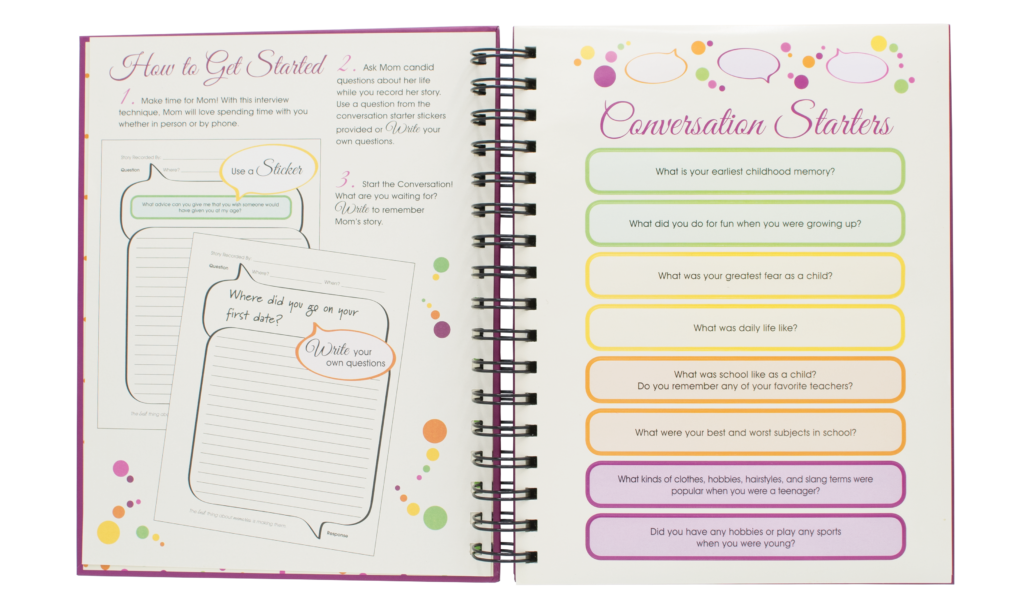 How to Get Started
1. Make time for Mom! With this interview
technique, Mom will love spending time with you
whether in person or by phone.
2. Ask Mom candid
questions about her life
while you record her story.
Use a question from the
conversation starter stickers
provided or Write your
own questions.
3. Start the Conversation!
What are you waiting for?
Write to remember
Mom's story.
Story Recorded By
Question
Where?
Use a Sticker
What advice can you give me that you wish someone would
have given you at my age?
Story Recorded By
Question
Where?
When?
Where did you go on your
first date?
Write your
own questions
Response
Conversation Starters
What is your earliest childhood memory?
What did you do for fun when you were growing up?
What was your greatest fear as a child?
What was daily life like?
What was school like as a child?
Do you remember any of your favorite teachers?
What were your best and worst subjects in school?
What kinds of clothes, hobbies, hairstyles, and slang terms were
popular when you were a teenager?
Did you have any hobbies or play any sports
when you were young?